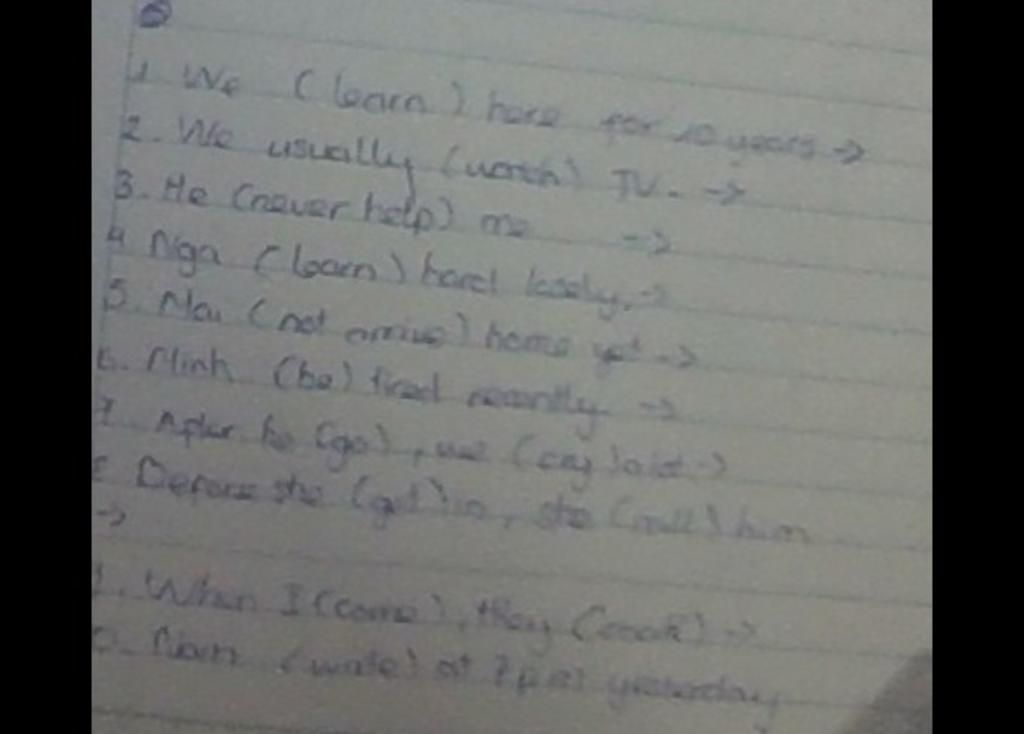 1. We (learn) here for 10 years →
2. We usually (watch) TV. →
3. He (never help) me →
4 Nga (learn) hard lately. →
5. Mai (not arrive) home yet →
6. Minh (be) tired recently →
7. After he (go), we (cry) →
8 Before she (get) in, she (call) him
→
When I (come), they (cook) →
Nam (write) at yesterday